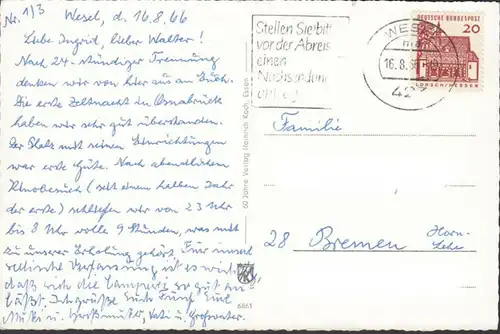 Nr. 1/3
Wesel, d. 16.8.66
Liebe Ingrid, lieber Walter!
Nach 24-stündiger Trennung
denken wir von hier aus an Euch.
Die erste Zeltnacht in Osnabrück
haben wir sehr gut überstanden.
Der Platz mit seinen Einrichtungen
war erste Güte. Nach abendlichem
Kinobesuch (seit einem halben Jahr
der erste) schliefen wir von 23 Uhr
bis 8 Uhr volle 9 Stunden, was mit
zu unserer Erholung gehört. Für unsere
seelische Verfassung ist es wichtig
daß sich die so gut an
läßt. Es grüßen Euch Fünf Eure
Mutti u. Großmutter, Vati u. Großvater.
60 Jahre Verlag Heinrich Koch, Essen
6861
Stellen Sie bitt
vor der Abreis
einen
Nachsenden
WESEL
16.8.66
DEUTSCHE BUNDESPOST
20
LORSCH/HESSEN
Familie
28 Bremen
Horn-
Lehe